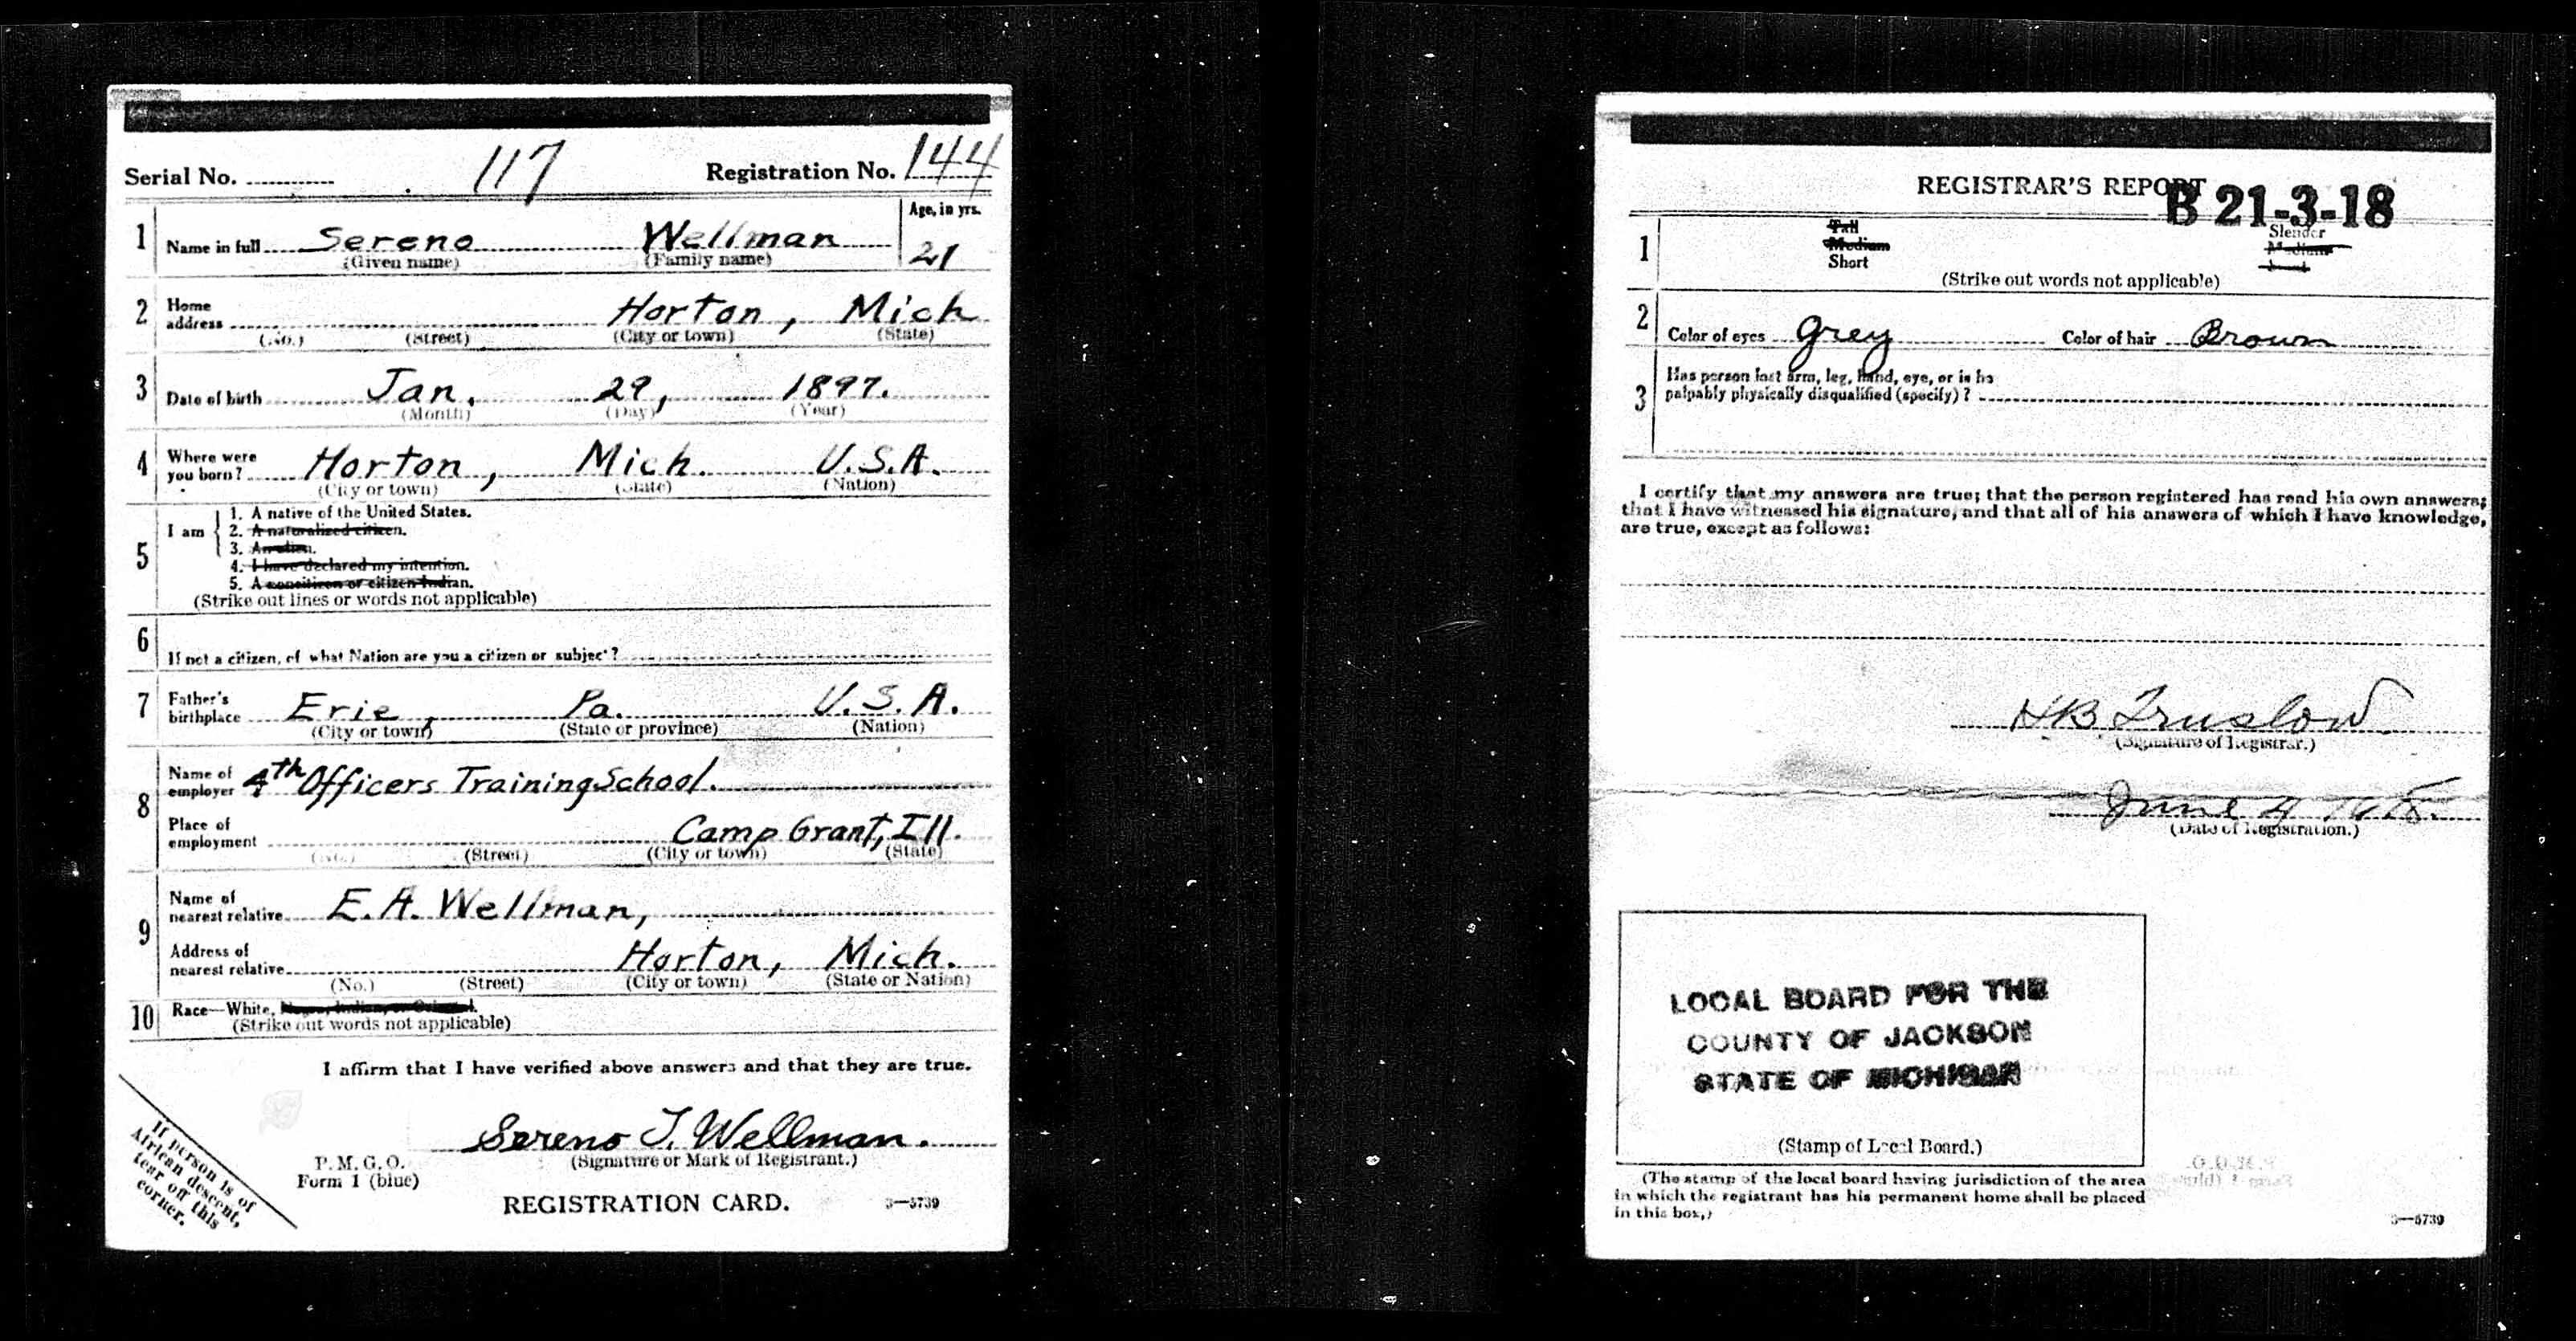 Serial No. 117 Registration No. 144
1 Name in full Sereno Wellman Age, in yrs. 21
(Given name) (Family name)
2 Home address Horton, Mich
(No.) (Street) (City or town) (State)
3 Date of birth Jan. 29, 1897.
(Month) (Day) (Year)
4 Where were you born? Horton, Mich. U.S.A.
(City or town) (State) (Nation)
5 I am
1. A native of the United States.
2. A naturalized citizen.
3. An alien.
4. I have declared my intention.
5. A noncitizen or citizen Indian.
(Strike out lines or words not applicable)
6 If not a citizen, of what Nation are you a citizen or subject?
7 Father's birthplace Erie, Pa. U.S.A.
(City or town) (State or province) (Nation)
8 Name of employer 4th Officers Training School.
Place of employment Camp Grant, Ill.
(No.) (Street) (City or town) (State)
9 Name of nearest relative E.A. Wellman,
Address of nearest relative Horton, Mich.
(No.) (Street) (City or town) (State or Nation)
10 Race—White, Negro, Indian, or Oriental.
(Strike out words not applicable)
I affirm that I have verified above answers and that they are true.
Sereno J. Wellman.
(Signature or Mark of Registrant.)
P. M. G. O.
Form 1 (blue)
REGISTRATION CARD.
3—5739
If person is of
African descent,
tear off this
corner.
REGISTRAR'S REPORT
B 21-3-18
1 Tall Slender
Medium Medium
Short
(Strike out words not applicable)
2 Color of eyes Grey Color of hair Brown
3 Has person lost arm, leg, hand, eye, or is he
palpably physically disqualified (specify)?
I certify that my answers are true; that the person registered has read his own answers;
that I have witnessed his signature, and that all of his answers of which I have knowledge,
are true, except as follows:
HB Truslow
(Signature of Registrar.)
June 4
(Date of Registration.)
LOCAL BOARD FOR THE
COUNTY OF JACKSON
STATE OF MICHIGAN
(Stamp of Local Board.)
(The stamp of the local board having jurisdiction of the area
in which the registrant has his permanent home shall be placed
in this box.)
3—5739